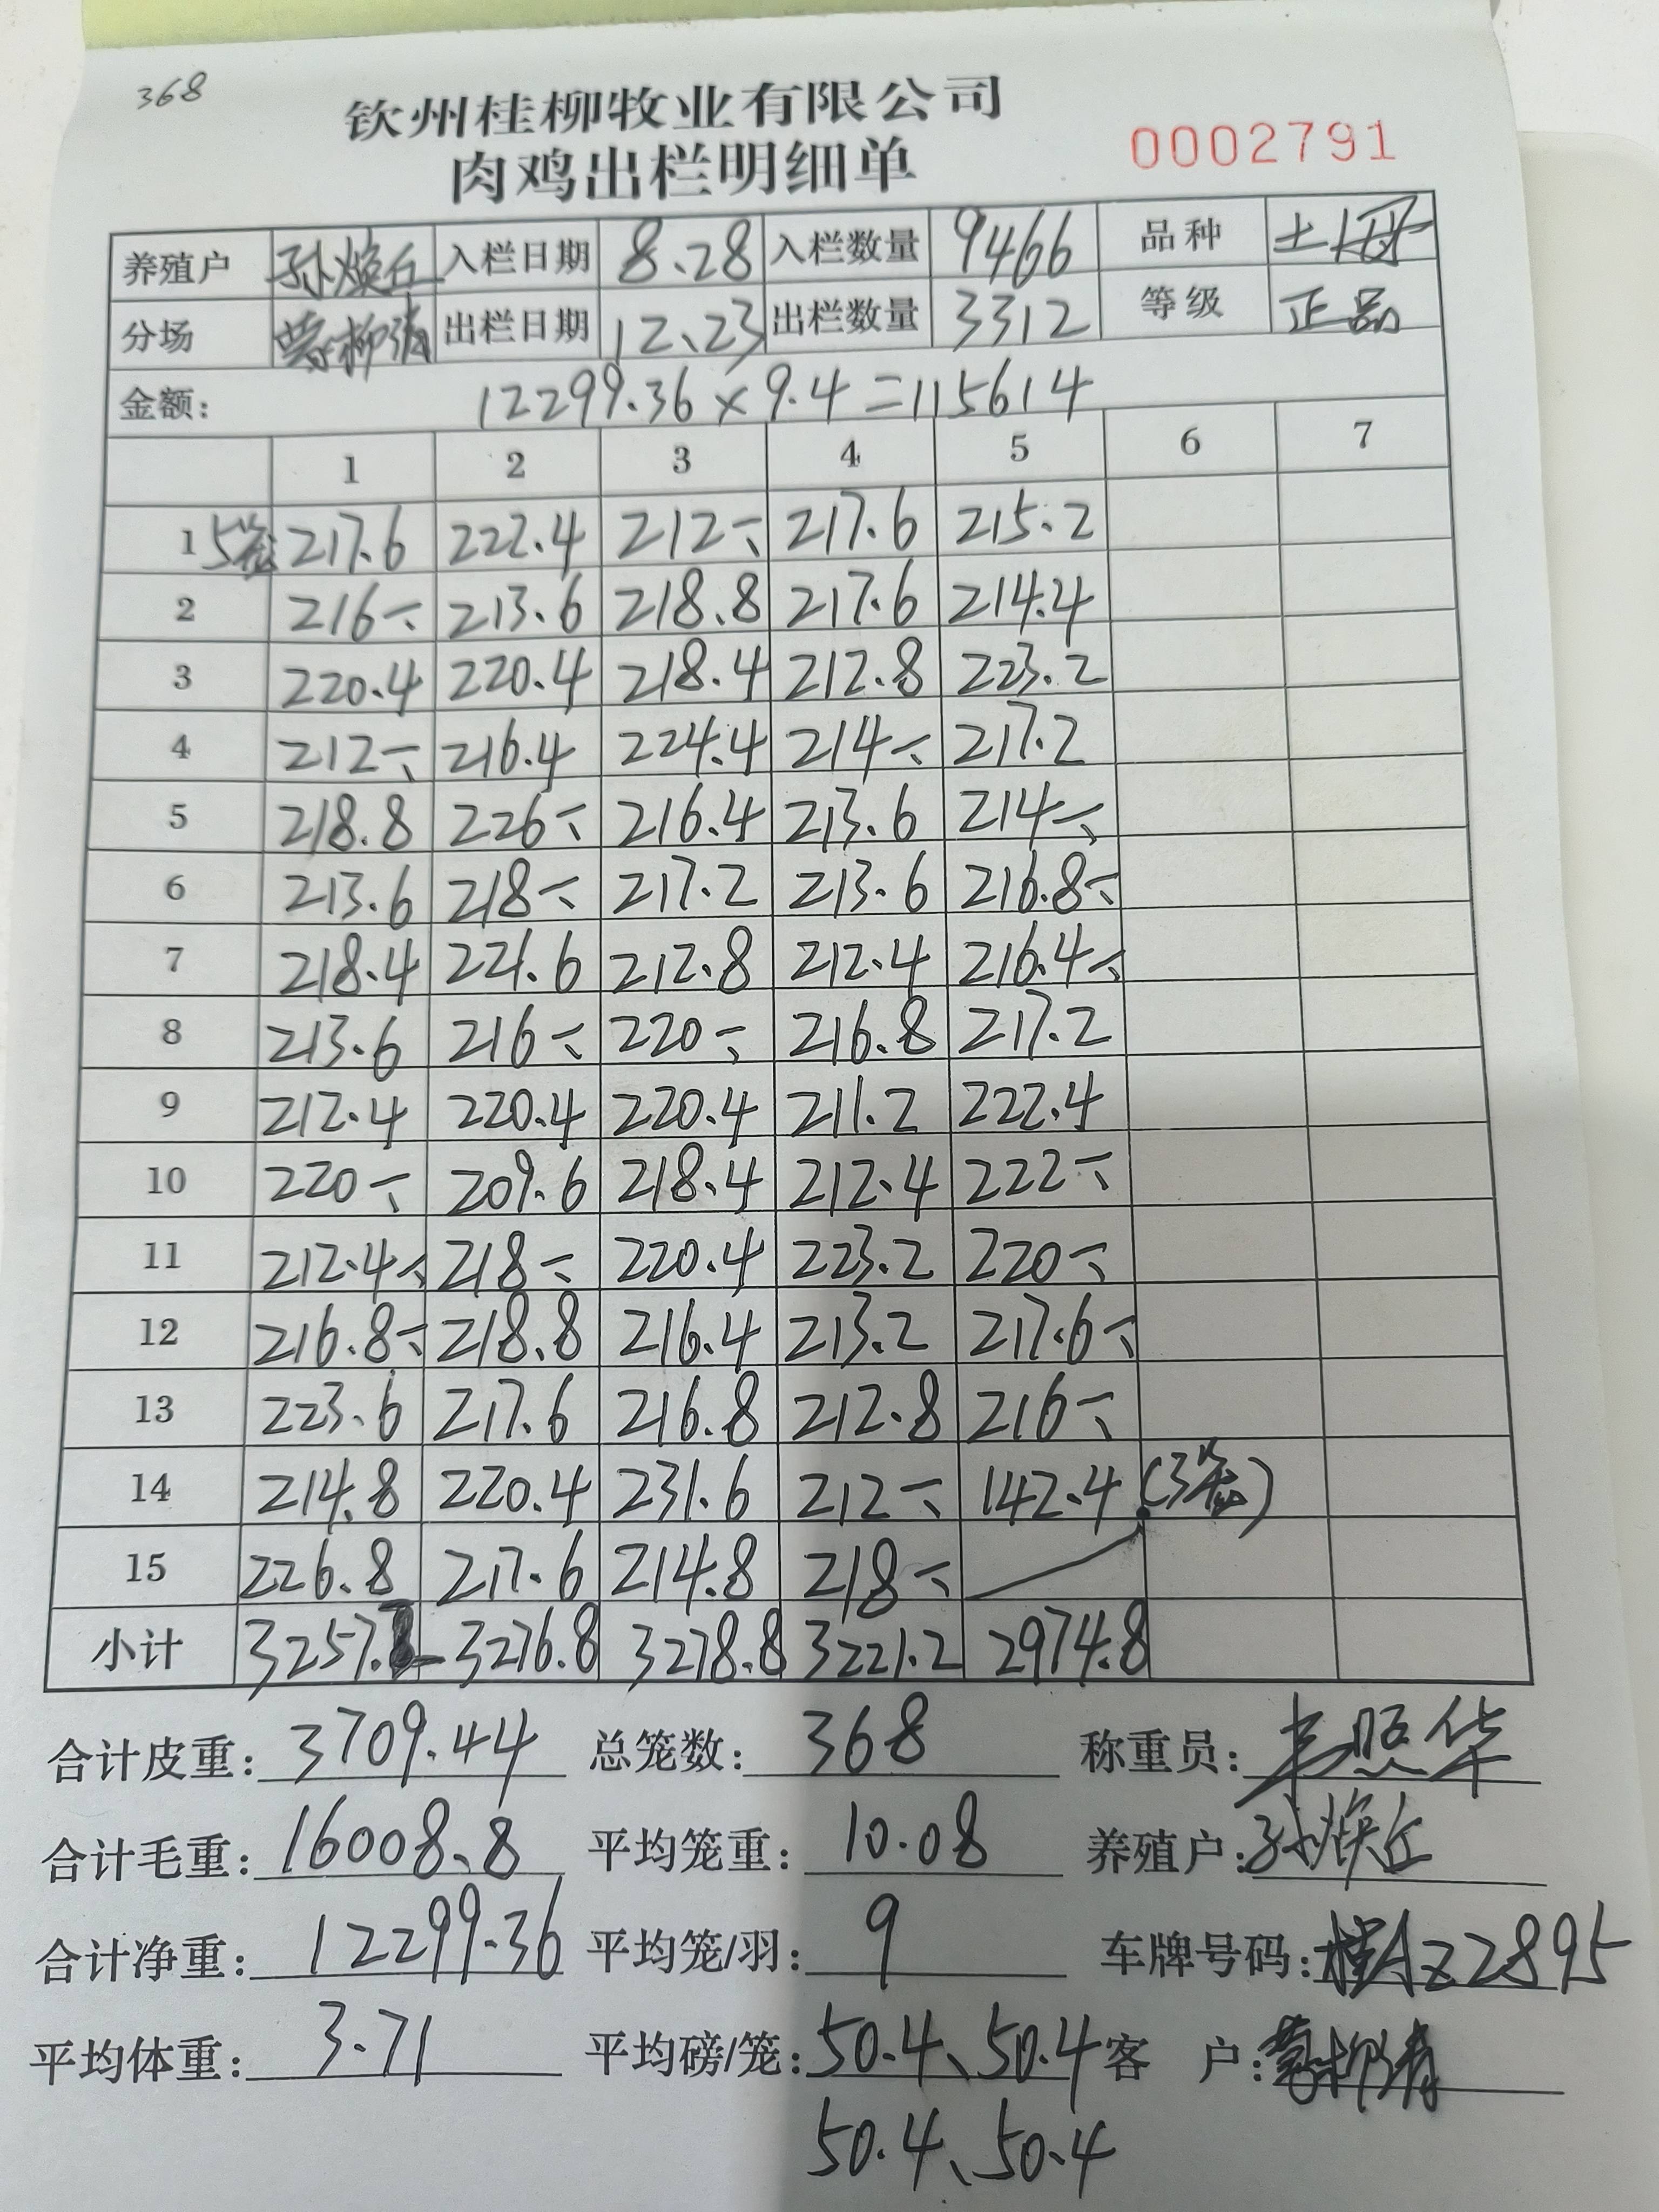 368
钦州桂柳牧业有限公司
肉鸡出栏明细单
0002791
养殖户 孙焕丘 入栏日期 8.28 入栏数量 9466 品种 土母
分场 出栏日期 12.23 出栏数量 3312 等级 正品
金额: 12299.36×9.4=115614
1 2 3 4 5 6 7
1 5笼 217.6 222.4 212÷ 217.6 215.2
2 216÷ 213.6 218.8 217.6 214.4
3 220.4 220.4 218.4 212.8 223.2
4 212÷ 216.4 224.4 214÷ 217.2
5 218.8 226÷ 216.4 213.6 214÷
6 213.6 218÷ 217.2 213.6 216.8÷
7 218.4 221.6 212.8 212.4 216.4÷
8 213.6 216÷ 220÷ 216.8 217.2
9 212.4 220.4 220.4 211.2 222.4
10 220÷ 209.6 218.4 212.4 222÷
11 212.4÷ 218÷ 220.4 223.2 220÷
12 216.8÷ 218.8 216.4 213.2 217.6÷
13 223.6 217.6 216.8 212.8 216÷
14 214.8 220.4 231.6 212÷ 142.4 (3笼)
15 226.8 217.6 214.8 218÷
小计 3257. 3276.8 3278.8 3221.2 2974.8
合计皮重: 3709.44 总笼数: 368 称重员: 照华
合计毛重: 16008.8 平均笼重: 10.08 养殖户: 孙焕丘
合计净重: 12299.36 平均笼/羽: 9 车牌号码: 桂AZ2895
平均体重: 3.71 平均磅/笼: 50.4、50.4 客 户:
50.4、50.4